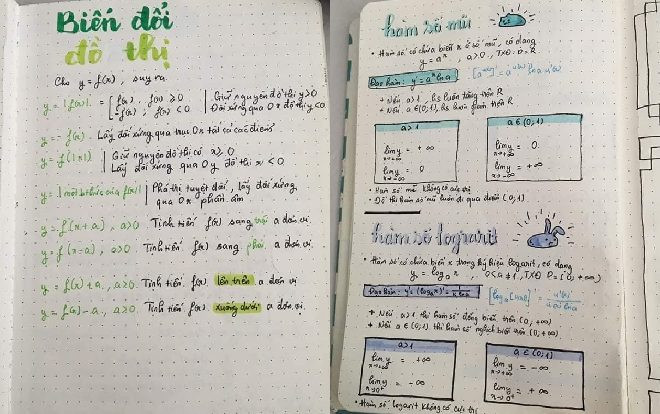 Biến đổi
đồ thị
Cho y = f(x), suy ra
y = |f(x)| = [ f(x), f(x) ≥ 0 | Giữ nguyên đồ thị y ≥ 0
-f(x), f(x) < 0 | Đối xứng qua Ox đồ thị y < 0
y = -f(x). Lấy đối xứng qua trục Ox tất cả các điểm
y = f(|x|) | Giữ nguyên đồ thị có x ≥ 0
Lấy đối xứng qua Oy đồ thị x < 0
y = |1 nửa b/thức của f(x)| | Phá trị tuyệt đối, lấy đối xứng
qua Ox phần âm
y = f(x+a), a>0 Tịnh tiến f(x) sang trái a đơn vị
y = f(x-a), a>0 Tịnh tiến f(x) sang phải a đơn vị.
y = f(x) + a, a>0. Tịnh tiến f(x) lên trên a đơn vị
y = f(x) - a, a>0. Tịnh tiến f(x) xuống dưới a đơn vị.
hàm số mũ
• Hàm số có chứa biến x ở số mũ, có dạng
y = aˣ, a>0, TXĐ: D = R
Đạo hàm: y' = aˣ lna
+ Nếu a>1, hs luôn tăng trên R
+ Nếu a ∈ (0;1), hs luôn giảm trên R
a>1
a ∈ (0;1)
lim y = +∞
x→+∞
lim y = 0
x→-∞
lim y = 0.
x→+∞
lim y = +∞
x→-∞
• Hàm số mũ không có cực trị
• Đồ thị hàm số mũ luôn đi qua điểm (0;1)
hàm số logarit
• Hàm số có chứa biến x trong ký hiệu logarit, có dạng
y = logₐx, 0<a≠1, TXĐ D = (0; +∞)
Đạo hàm: y' = (logₐx)' = 1/xlna
+ Nếu a>1 thì hàm số đồng biến trên (0; +∞)
+ Nếu a ∈ (0;1) thì hàm số nghịch biến trên (0; +∞)
a>1
a ∈ (0;1)
lim y = +∞
x→+∞
lim y = -∞
x→0⁺
lim y = -∞
x→+∞
lim y = +∞
x→0⁺
• Hàm số logarit không có cực trị